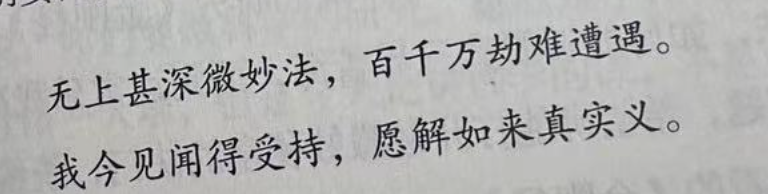 无上甚深微妙法，百千万劫难遭遇。
我今见闻得受持，愿解如来真实义。